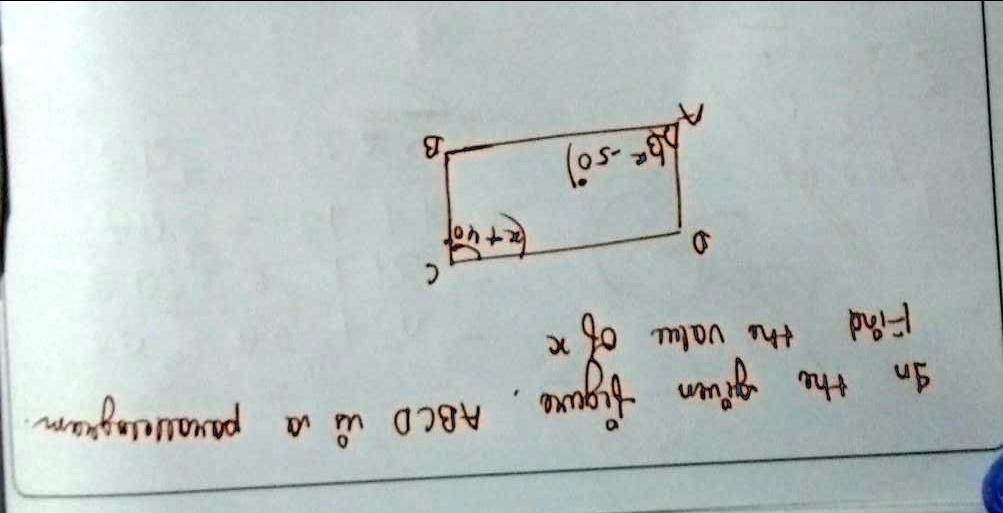 In the given figure, ABCD is a parallelogram.
Find the value of x
D
C
(x+40
-50)°
A
B